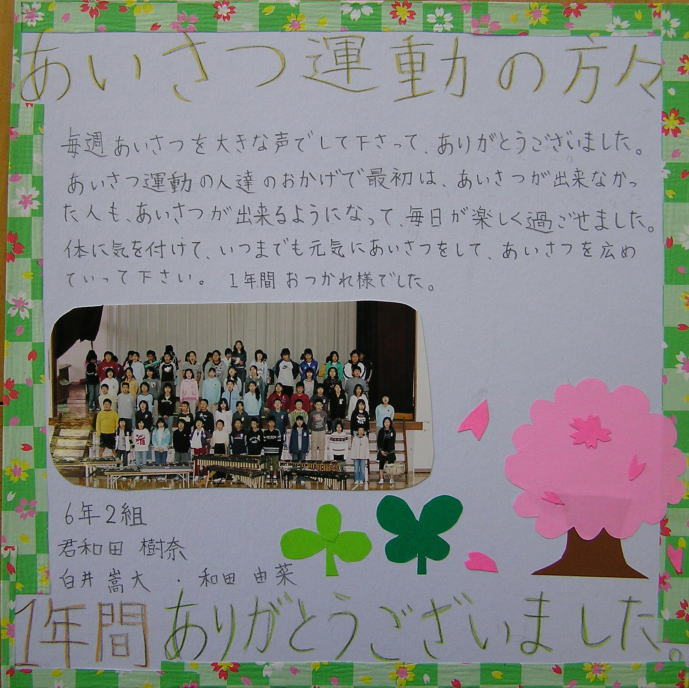 あいさつ運動の方々
毎週あいさつを大きな声でして下さって、ありがとうございました。
あいさつ運動の人達のおかげで最初は、あいさつが出来なかっ
た人も、あいさつが出来るようになって、毎日が楽しく過ごせました。
体に気を付けて、いつまでも元気にあいさつをして、あいさつを広め
ていって下さい。 1年間おつかれ様でした。
6年2組
君和田 樹奈
白井嵩大 ・ 和田 由菜
1年間 ありがとうございました。